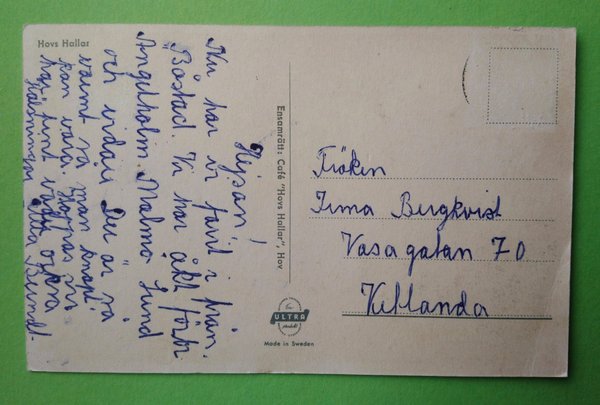 Hovs Hallar
Hejsan!
Nu har vi farit i från
Båstad. Vi har åkt förbi
Ängelholm. Malmö Lund
och vidare. Det är så
varmt så man knapt
kan vara. Hoppas ni
har fint väder också
Hälsningar Berndt-
Ensamrätt: Café "Hovs Hallar", Hov
En
ULTRA
produkt
Made in Sweden
Fröken
Irma Bergkvist
Vasagatan 70
Killanda